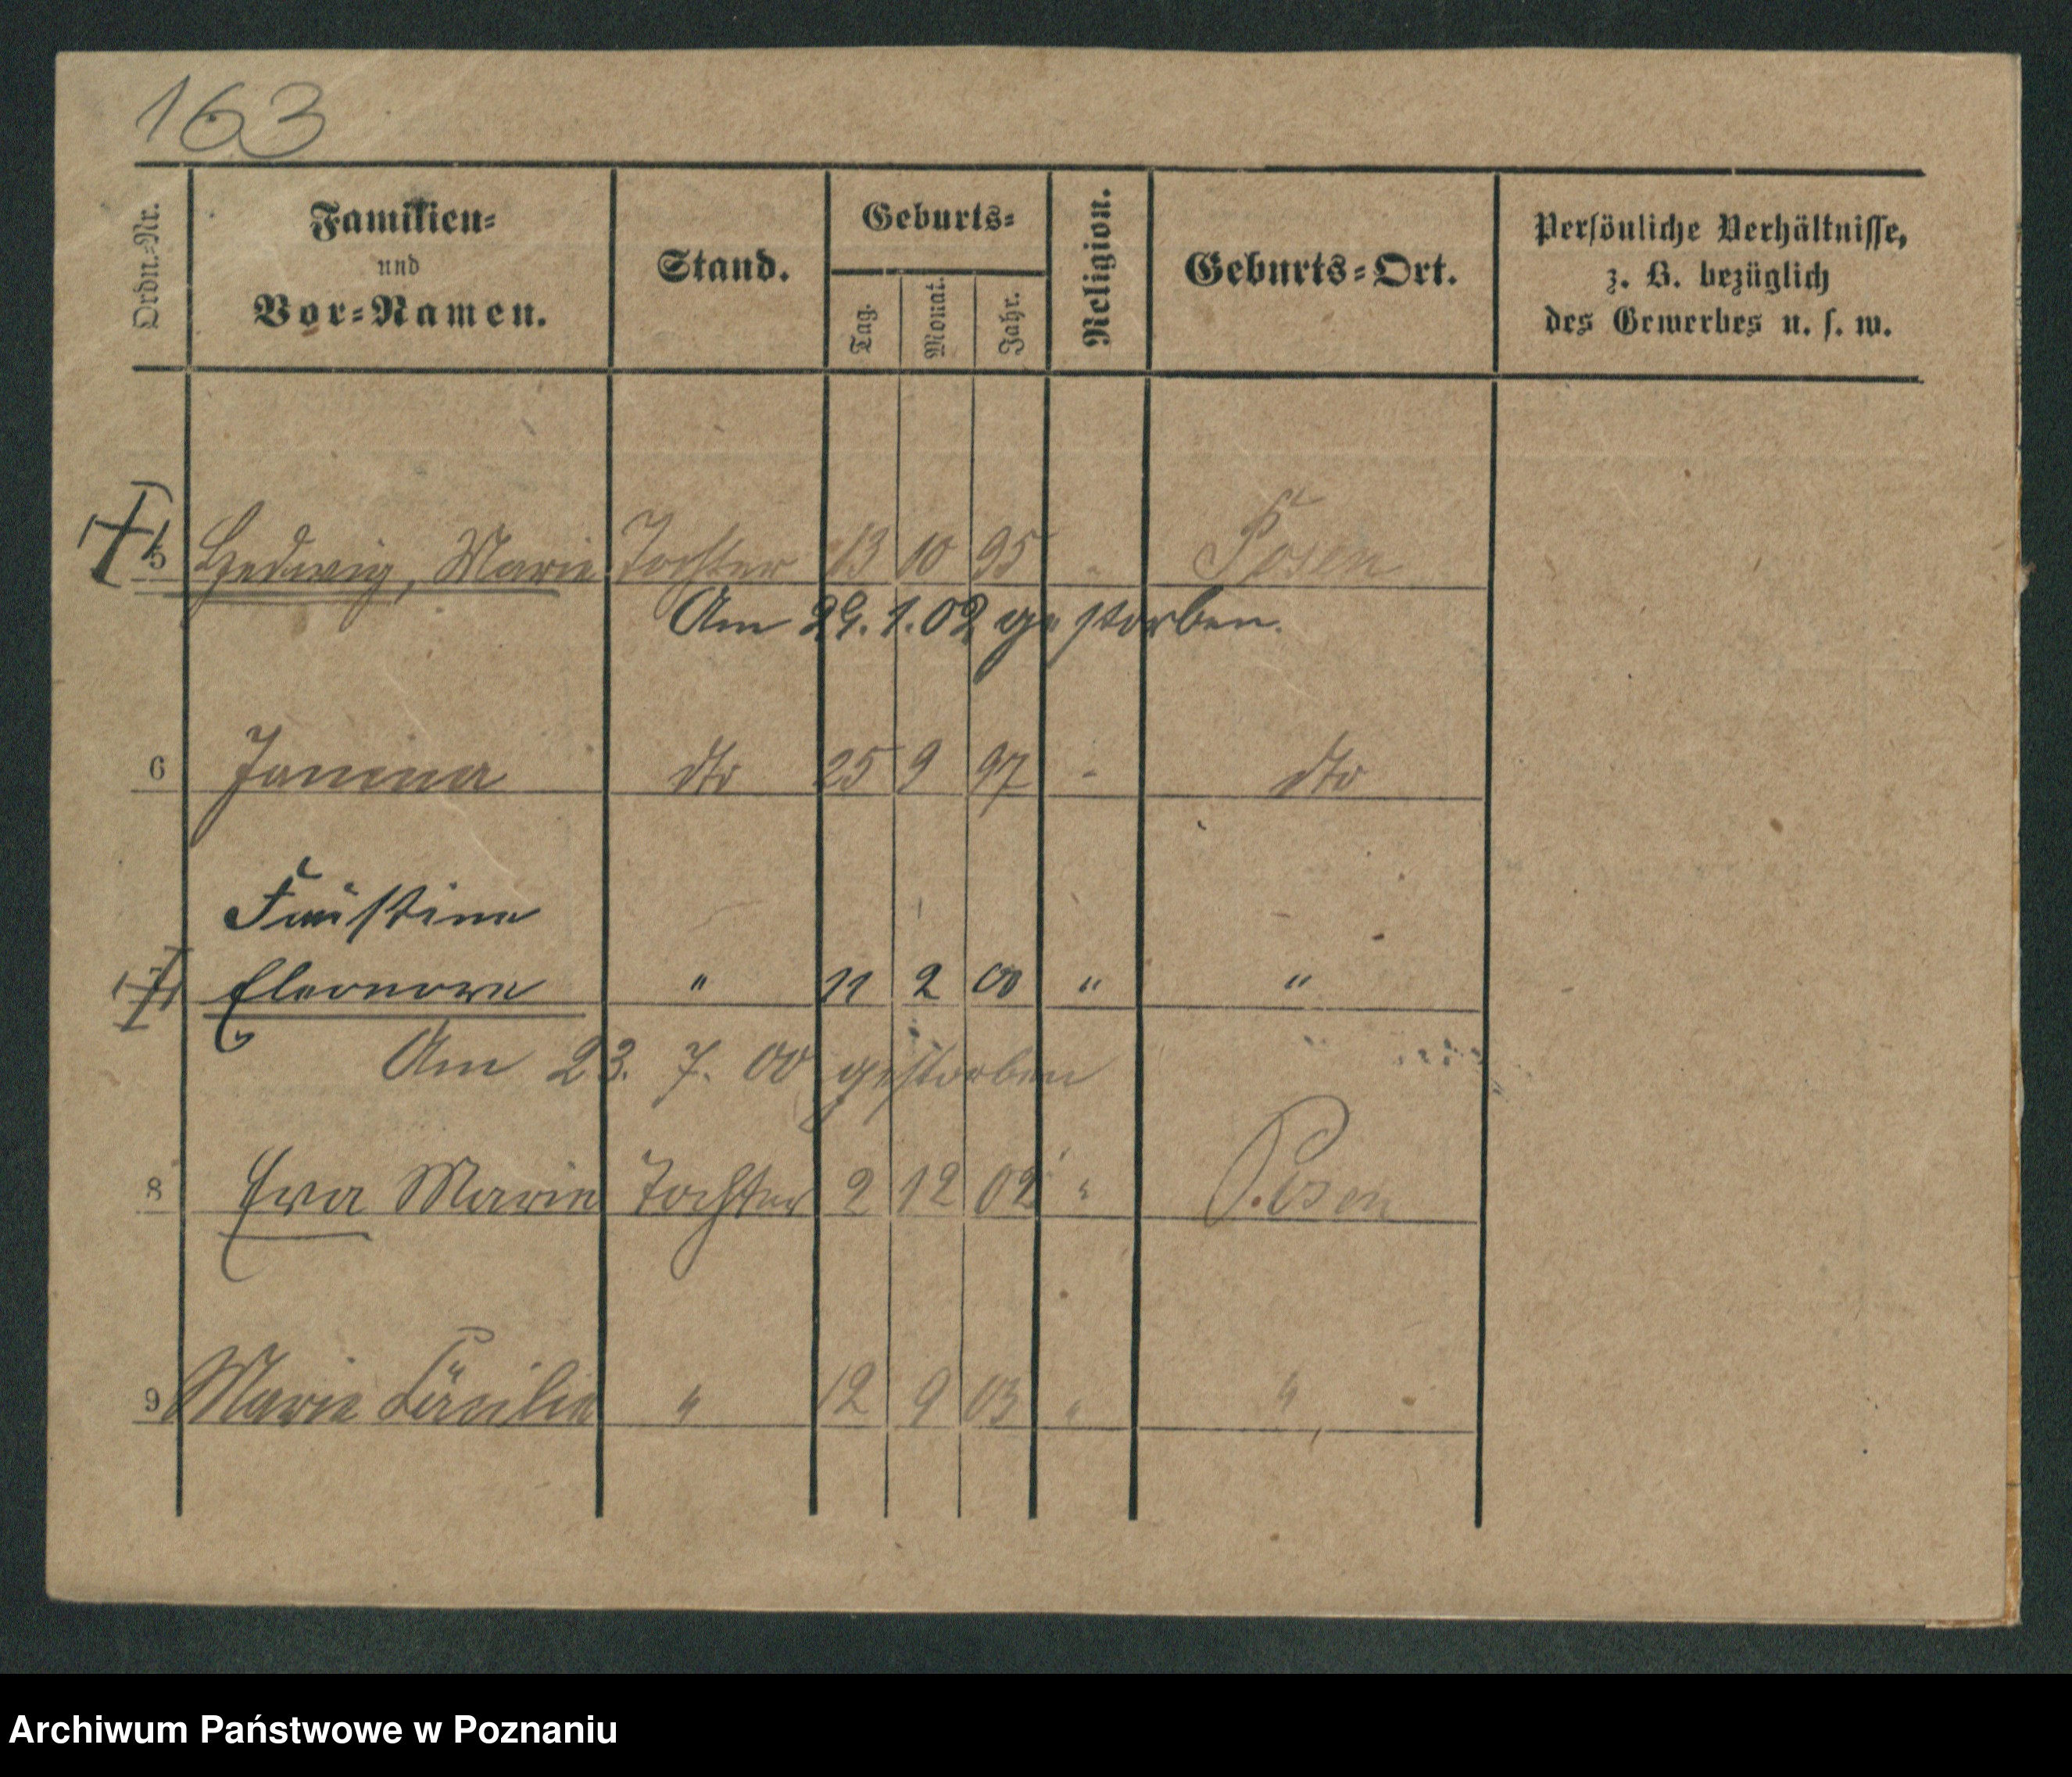 163
Ordn.-Nr. Familien- und Vor-Namen. Stand. Geburts- Tag. Monat. Jahr. Religion. Geburts-Ort. Persönliche Verhältnisse, z. B. bezüglich des Gewerbes u. s. w.
5 Hedwig, Marie Tochter 13 10 95 " Posen
Am 29. 1. 02 gestorben.
6 Janina dto 25 9 97 - dto
Faustine
7 Eleonore " 11 2 00 " "
Am 23. 7. 00 gestorben
8 Eva Marie Tochter 2 12 02 " Posen
9 Marie Cäcilie " 12 9 03 " "
Archiwum Państwowe w Poznaniu